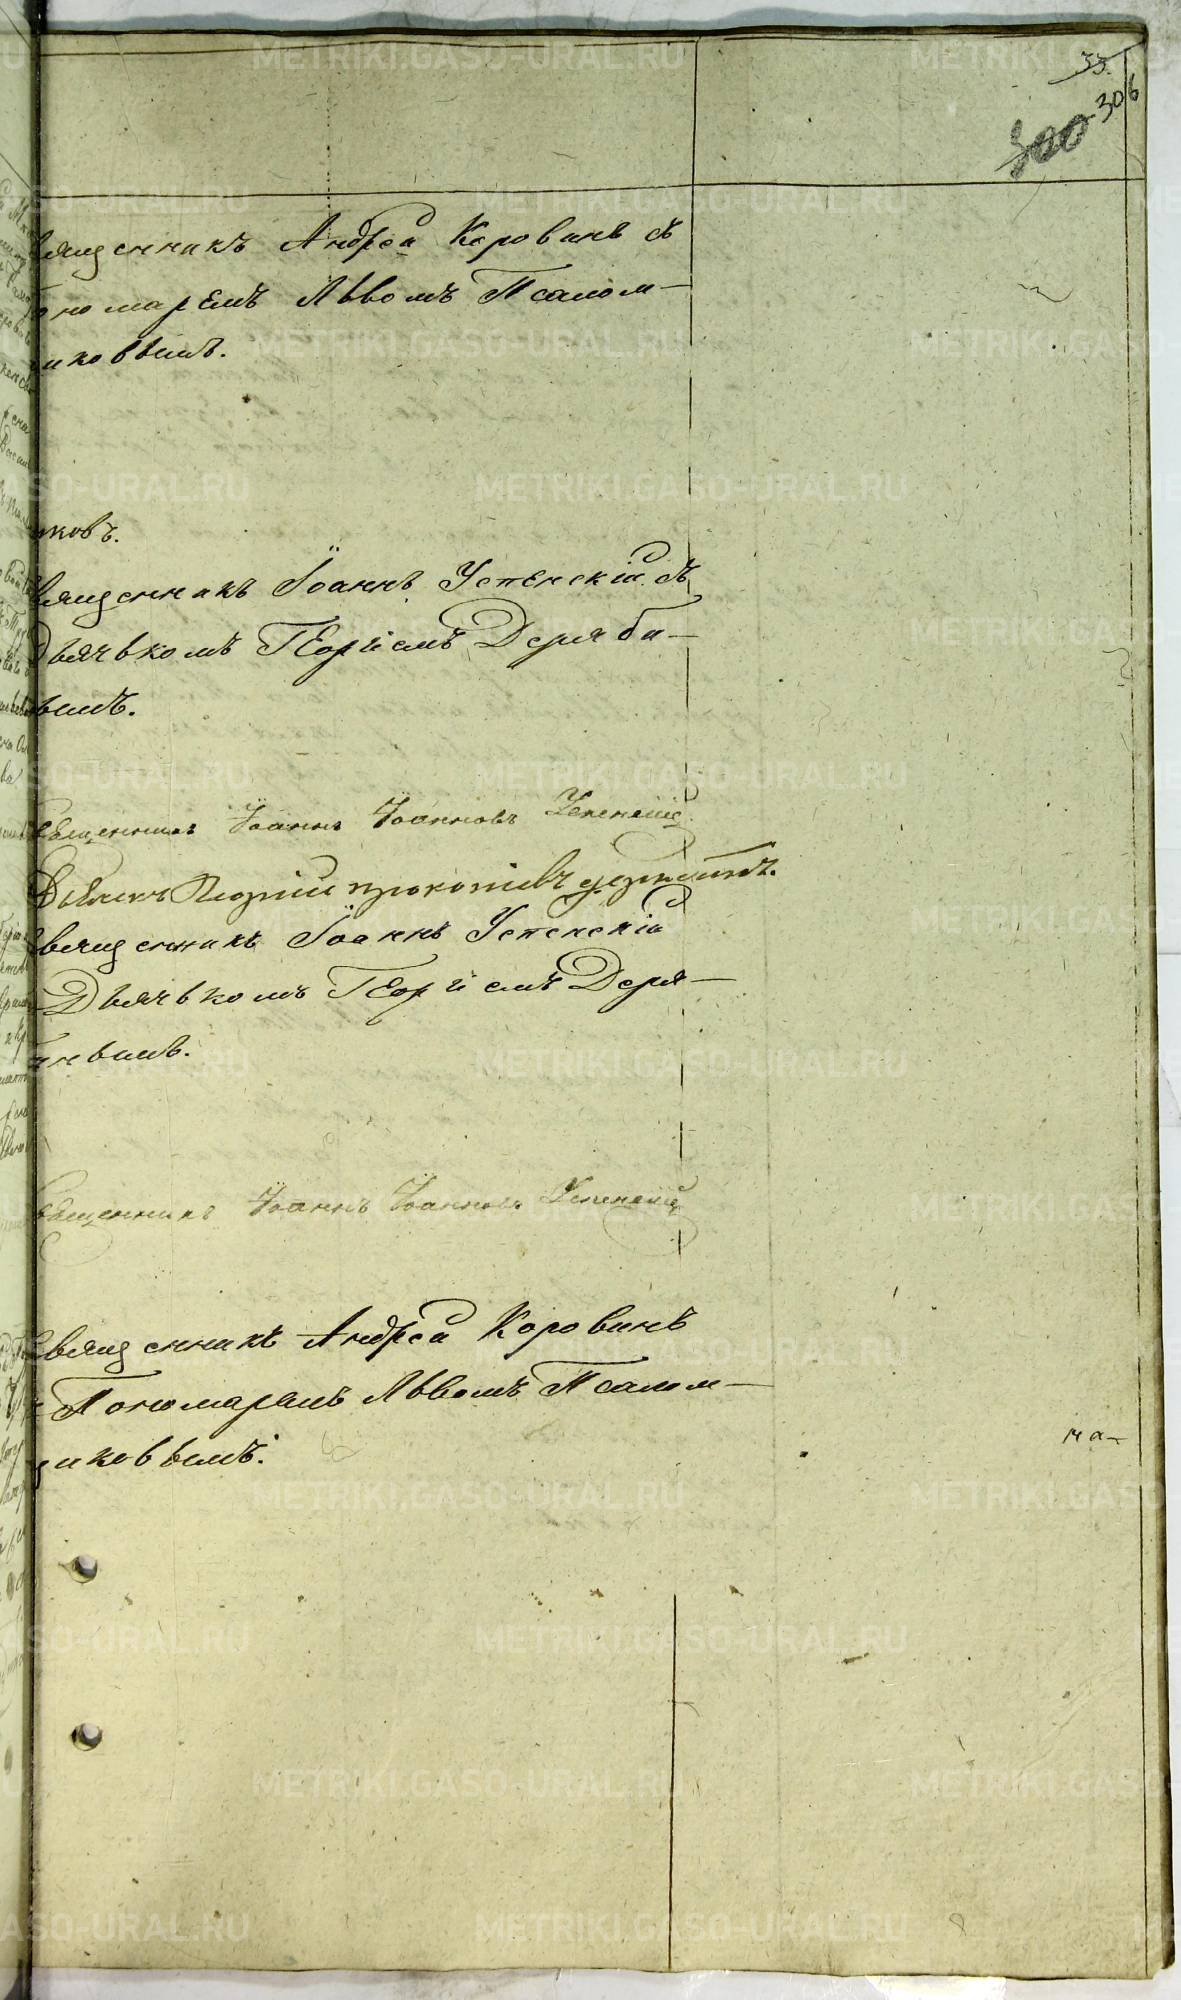 33.
306
300
вященникъ Андрей Коровинъ съ
ономаремъ Львомъ Псалом-
иковымъ.
иковъ.
вященникъ Іоаннъ Успенскій съ
Дьячькомъ Георгіемъ Деряби-
вымъ.
Священникъ Іоаннъ Іоанновъ Успенскій
Дьячекъ
Священникъ Іоаннъ Успенскій
Дьячькомъ Георгіемъ Деря-
невымъ.
Священникъ Іоаннъ Іоанновъ Успенскій
Священникъ Андрей Коровинъ
Пономаремъ Львомъ Псалом-
щиковымъ.
на-
METRIKI.GASO-URAL.RU